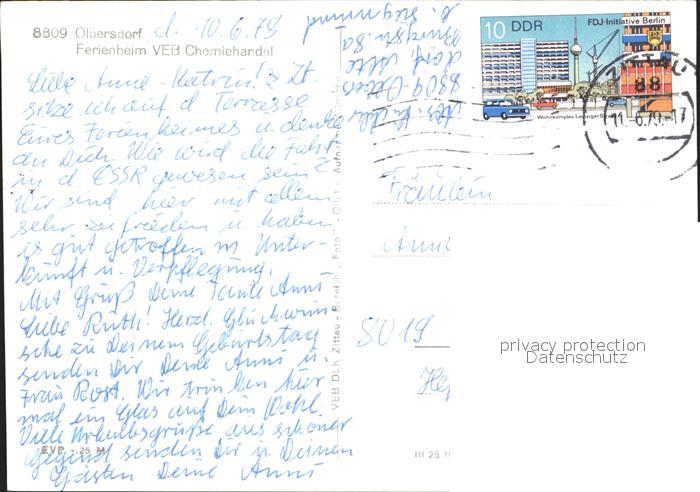 8809 Olbersdorf d. 10.6.79
Ferienheim VEB Chemiehandel
Liebe Anne-Katrin! z. Zt.
sitze ich auf d. Terrasse
Eures Ferienheimes u. denke
an Dich. Wie wird die Fahrt
in d. ČSSR gewesen sein?
Wir sind hier mit allem
sehr zufrieden u. haben
es gut getroffen m. Unter-
kunft u. Verpflegung.
Mit Gruß Deine Tante Anni
Liebe Ruth! Herzl. Glückwün-
sche zu Deinem Geburtstag
senden Dir Deine Anni u.
Frau Rost. Wir trinken hier
mal ein Glas auf Dein Wohl.
Viele Urlaubsgrüße aus schöner
Gegend senden Dir u. Deinen
Gästen Deine Anni
EVP -.25 M
VEB DLK Zittau
8809 Olbers
dorf
10 DDR
FDJ-Initiative Berlin
Wohnkomplex Leipziger
ZITTAU
88
11.-6.79.-17
Fräulein
Anne
8019
privacy protection
Datenschutz
III 28 1